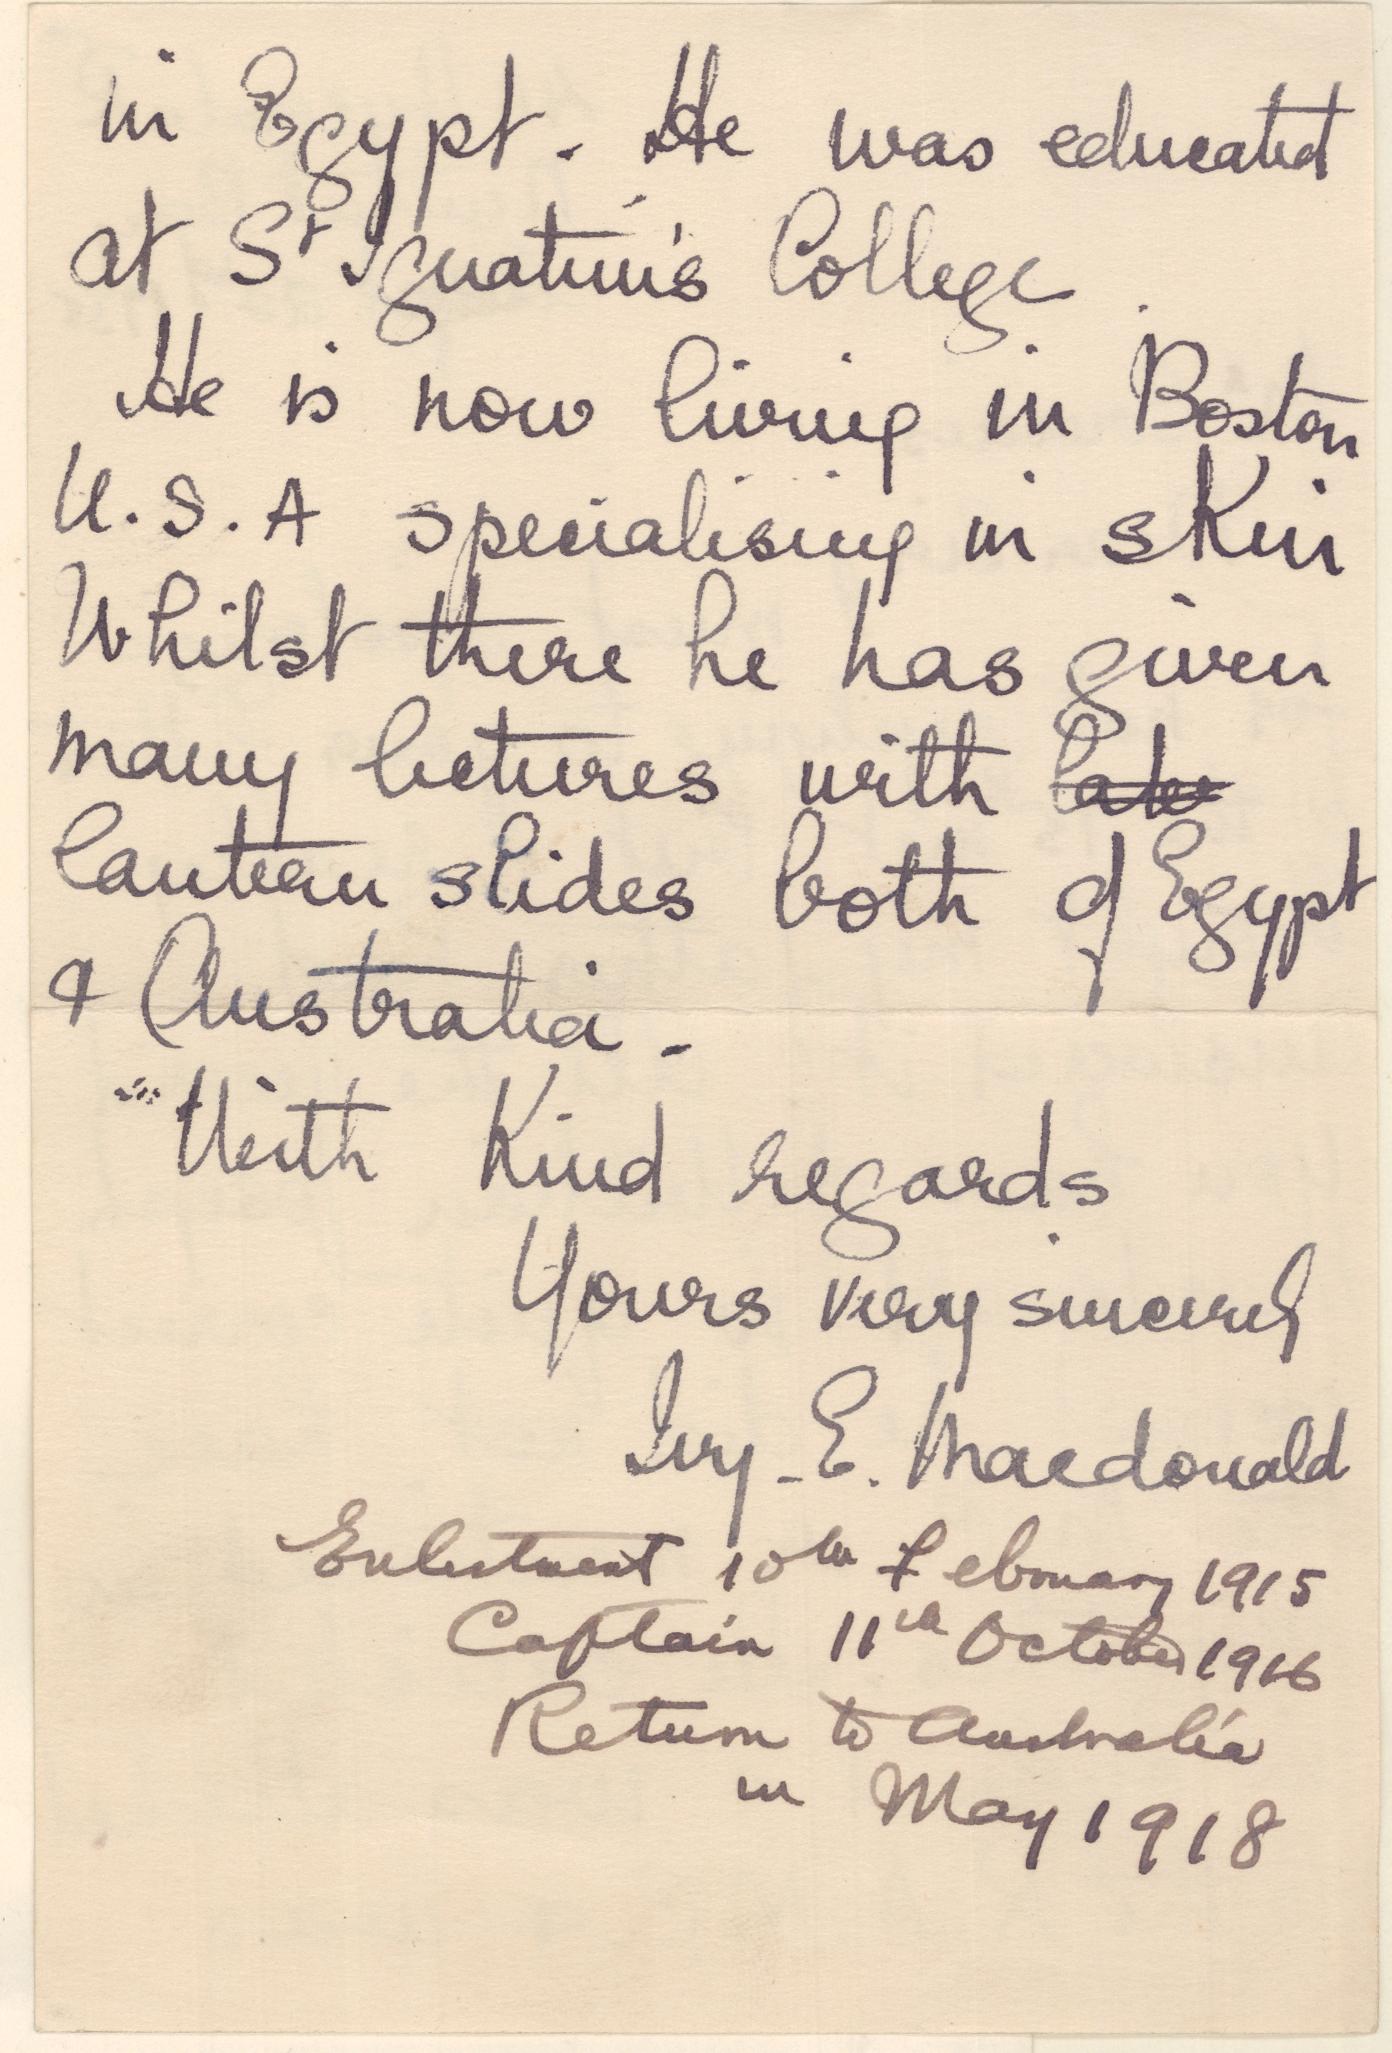 in Egypt. He was educated
at St Ignatius's College.
He is now living in Boston
U.S.A specialising in skin
Whilst there he has given
many lectures with
lantern slides both of Egypt
& Australia.
With Kind regards
Yours very sincerely
Ivy. E. Macdonald
Enlistment 10th February 1915
Captain 11th October 1916
Return to Australia
in May 1918